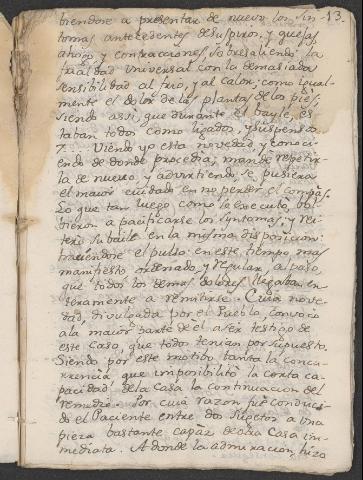 13.
biendose a presentar de nuevo los sin-
tomas antecedentes de suspiros, y quejas
ahogo, y contracciones, sobresaliendo la
frialdad universal con la demasiada
sensibilidad al frio, y al calor; como igual-
mente el dolor de las plantas de los pies,
siendo assi, que durante el bayle, es-
taban todos como ligados, y suspensos
7. Viendo yo esta novedad, y conoci-
endo de donde procedia, mandé repetir-
la de nuevo, y advirtiendo, se pusiera
el maior cuidado en no perder el compas.
Lo que tan luego como se executó, bol-
bieron a pacificarse los sintomas, y rei-
teró su baile en la misma disposicion:
trayendose el pulso en este tiempo mas
manifiesto ordenado, y regular, al paso,
que todos los demas dolores llegaban en-
seramente a remitirse. Cuia nove-
dad, divulgada por el Pueblo, convocó
ala maior parte de el a ser testigo de
este caso, que todos tenian por supuesto.
Siendo por este motibo tanta la concu-
rrencia que imposibilitó la corta ca-
pacidad de la casa la continuacion del
remedio. Por cuia razon fue conduci-
do el Paciente entre dos sugetos a una
pieza bastante capaz de otra Casa in-
mediata. A donde la admiracion hizo